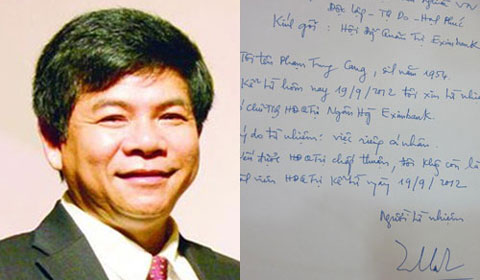 VN
Độc lập - Tự Do - Hạnh Phúc
Kính gởi : Hội Đồng Quản Trị Eximbank
Tôi tên Phạm Trung Cang, sN năm 1954.
Kể từ hôm nay 19/9/2012 tôi xin từ nhiệm
chủ tịch HĐQTrị Ngân Hàng Eximbank.
lý do từ nhiệm: việc riêng cá nhân.
được HĐQTrị chấp thuận, tôi không còn là
viên HĐQTrị kể từ ngày 19/9/2012
Người từ nhiệm